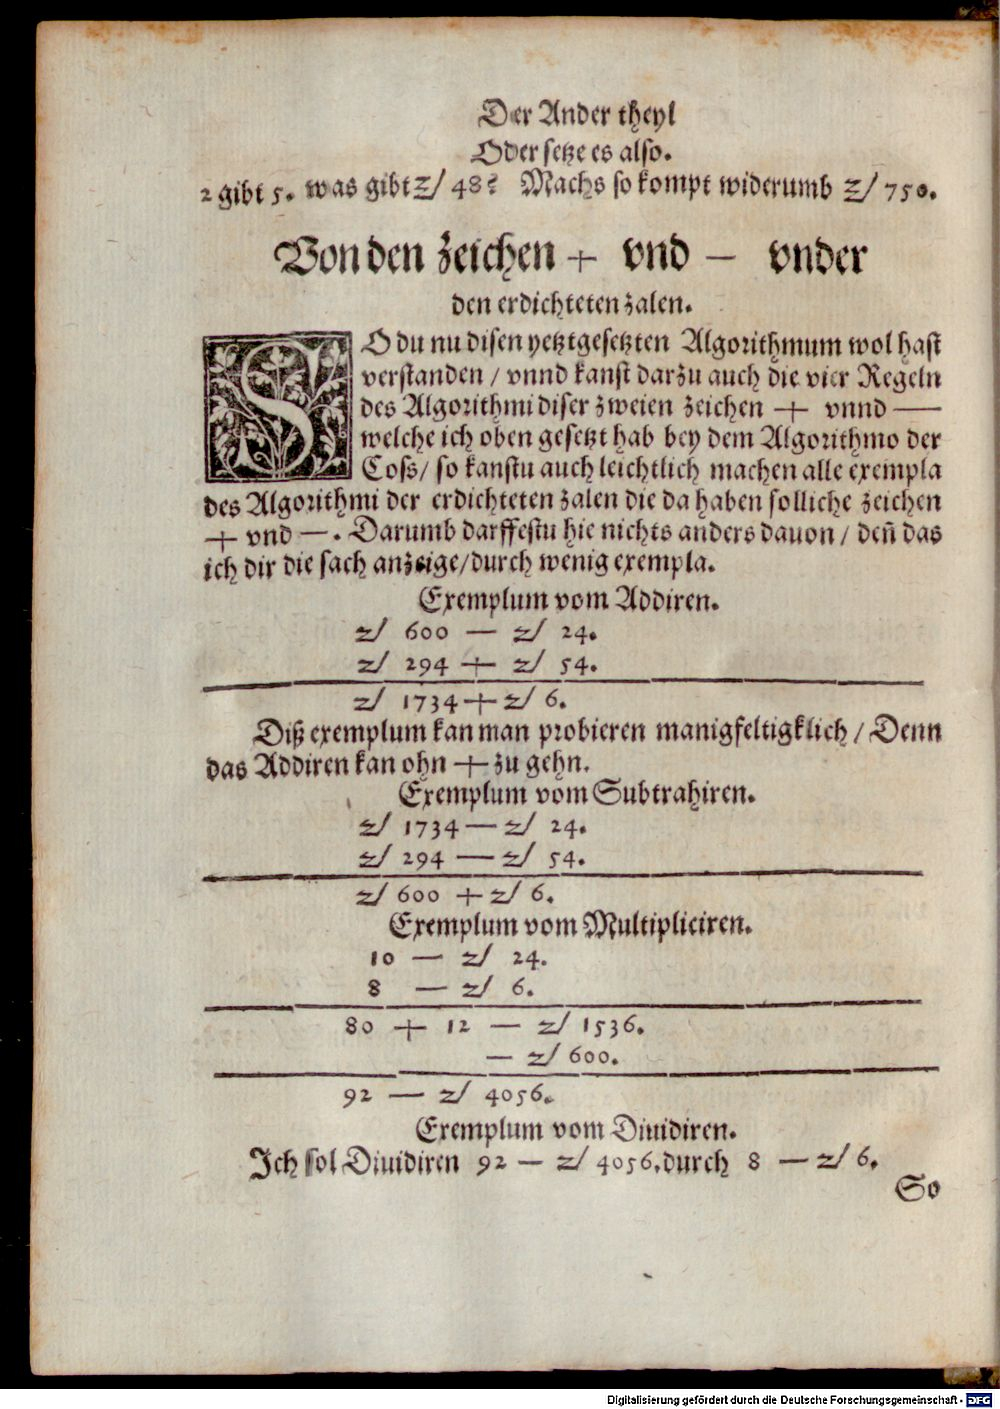 Der Ander theyl
Oder setze es also.
2 gibt 5. was gibt z/ 48? Machs so kompt widerumb z/ 750.
Von den zeichen + vnd — vnder
den erdichteten zalen.
SO du nu disen yetztgesetzten Algorithmum wol hast
verstanden / vnnd kanst darzu auch die vier Regeln
des Algorithmi diser zweien zeichen + vnnd —
welche ich oben gesetzt hab bey dem Algorithmo der
Coss/ so kanstu auch leichtlich machen alle exempla
des Algorithmi der erdichteten zalen die da haben solliche zeichen
+ vnd —. Darumb darffestu hie nichts anders dauon / deñ das
ich dir die sach anzeige/durch wenig exempla.
Exemplum vom Addiren.
z/ 600 — z/ 24.
z/ 294 + z/ 54.
z/ 1734 + z/ 6.
Diß exemplum kan man probieren manigfeltigklich / Denn
das Addiren kan ohn + zu gehn.
Exemplum vom Subtrahiren.
z/ 1734 — z/ 24.
z/ 294 — z/ 54.
z/ 600 + z/ 6.
Exemplum vom Multipliciren.
10 — z/ 24.
8 — z/ 6.
80 + 12 — z/ 1536.
— z/ 600.
92 — z/ 4056.
Exemplum vom Diuidiren.
Ich sol Diuidiren 92 — z/ 4056. durch 8 — z/ 6.
So
Digitalisierung gefördert durch die Deutsche Forschungsgemeinschaft - DFG